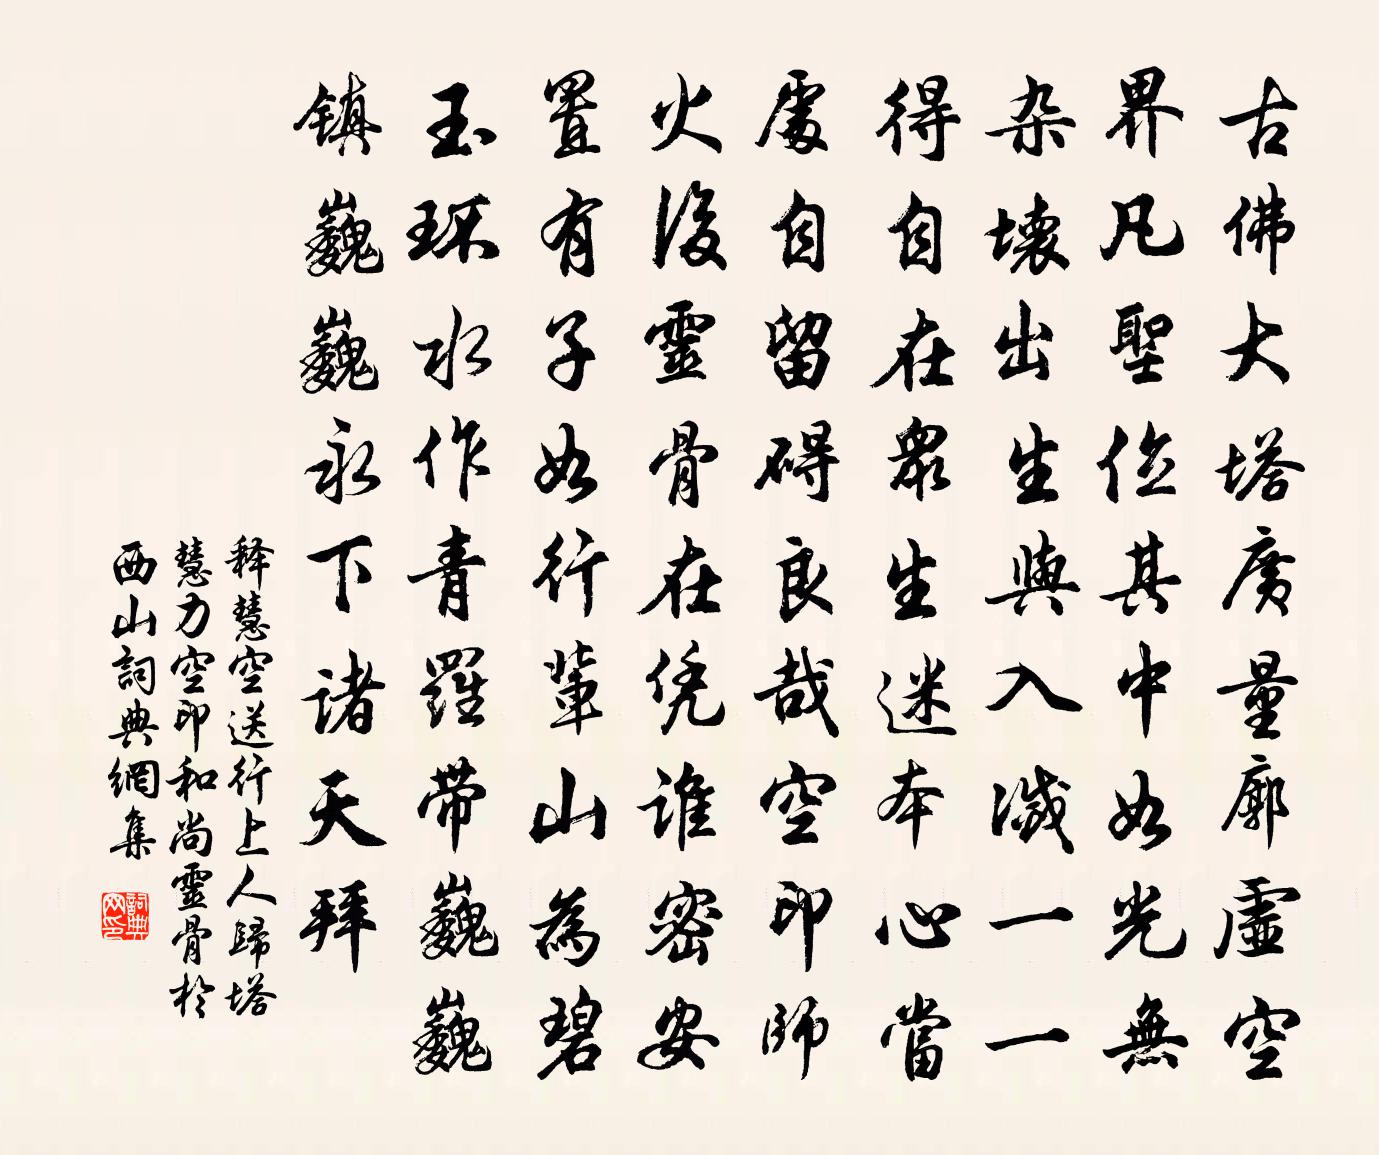 古佛大塔廣量廓虛空
界凡聖位其中如光無
杂壞出生與入滅一一
得自在衆生迷本心當
處自留碍良哉空印師
火後靈骨在凭誰密安
置有子如行輩山為碧
玉环水作青羅带巍巍
镇巍巍永下诸天拜
释慧空送行上人歸塔
慧力空印和尚靈骨於
西山詞典網集
詞典網印